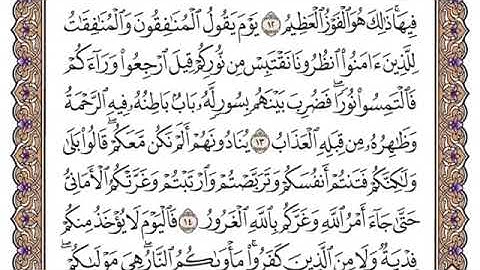 فِيهَا ذَٰلِكَ هُوَ ٱلْفَوْزُ ٱلْعَظِيمُ ١٢ يَوْمَ يَقُولُ ٱلْمُنَٰفِقُونَ وَٱلْمُنَٰفِقَٰتُ
لِلَّذِينَ ءَامَنُوا۟ ٱنظُرُونَا نَقْتَبِسْ مِن نُّورِكُمْ قِيلَ ٱرْجِعُوا۟ وَرَآءَكُمْ
فَٱلْتَمِسُوا۟ نُورًۭاۖ فَضُرِبَ بَيْنَهُم بِسُورٍۢ لَّهُۥ بَابٌۢ بَاطِنُهُۥ فِيهِ ٱلرَّحْمَةُ
وَظَٰهِرُهُۥ مِن قِبَلِهِ ٱلْعَذَابُ ١٣ يُنَادُونَهُمْ أَلَمْ نَكُن مَّعَكُمْۖ قَالُوا۟ بَلَىٰ
وَلَٰكِنَّكُمْ فَتَنتُمْ أَنفُسَكُمْ وَتَرَبَّصْتُمْ وَٱرْتَبْتُمْ وَغَرَّتْكُمُ ٱلْأَمَانِىُّ
حَتَّىٰ جَآءَ أَمْرُ ٱللَّهِ وَغَرَّكُم بِٱللَّهِ ٱلْغَرُورُ ١٤ فَٱلْيَوْمَ لَا يُؤْخَذُ مِنكُمْ
فِدْيَةٌۭ وَلَا مِنَ ٱلَّذِينَ كَفَرُوا۟ۚ مَأْوَىٰكُمُ ٱلنَّارُۖ هِىَ مَوْلَىٰكُمْۖ